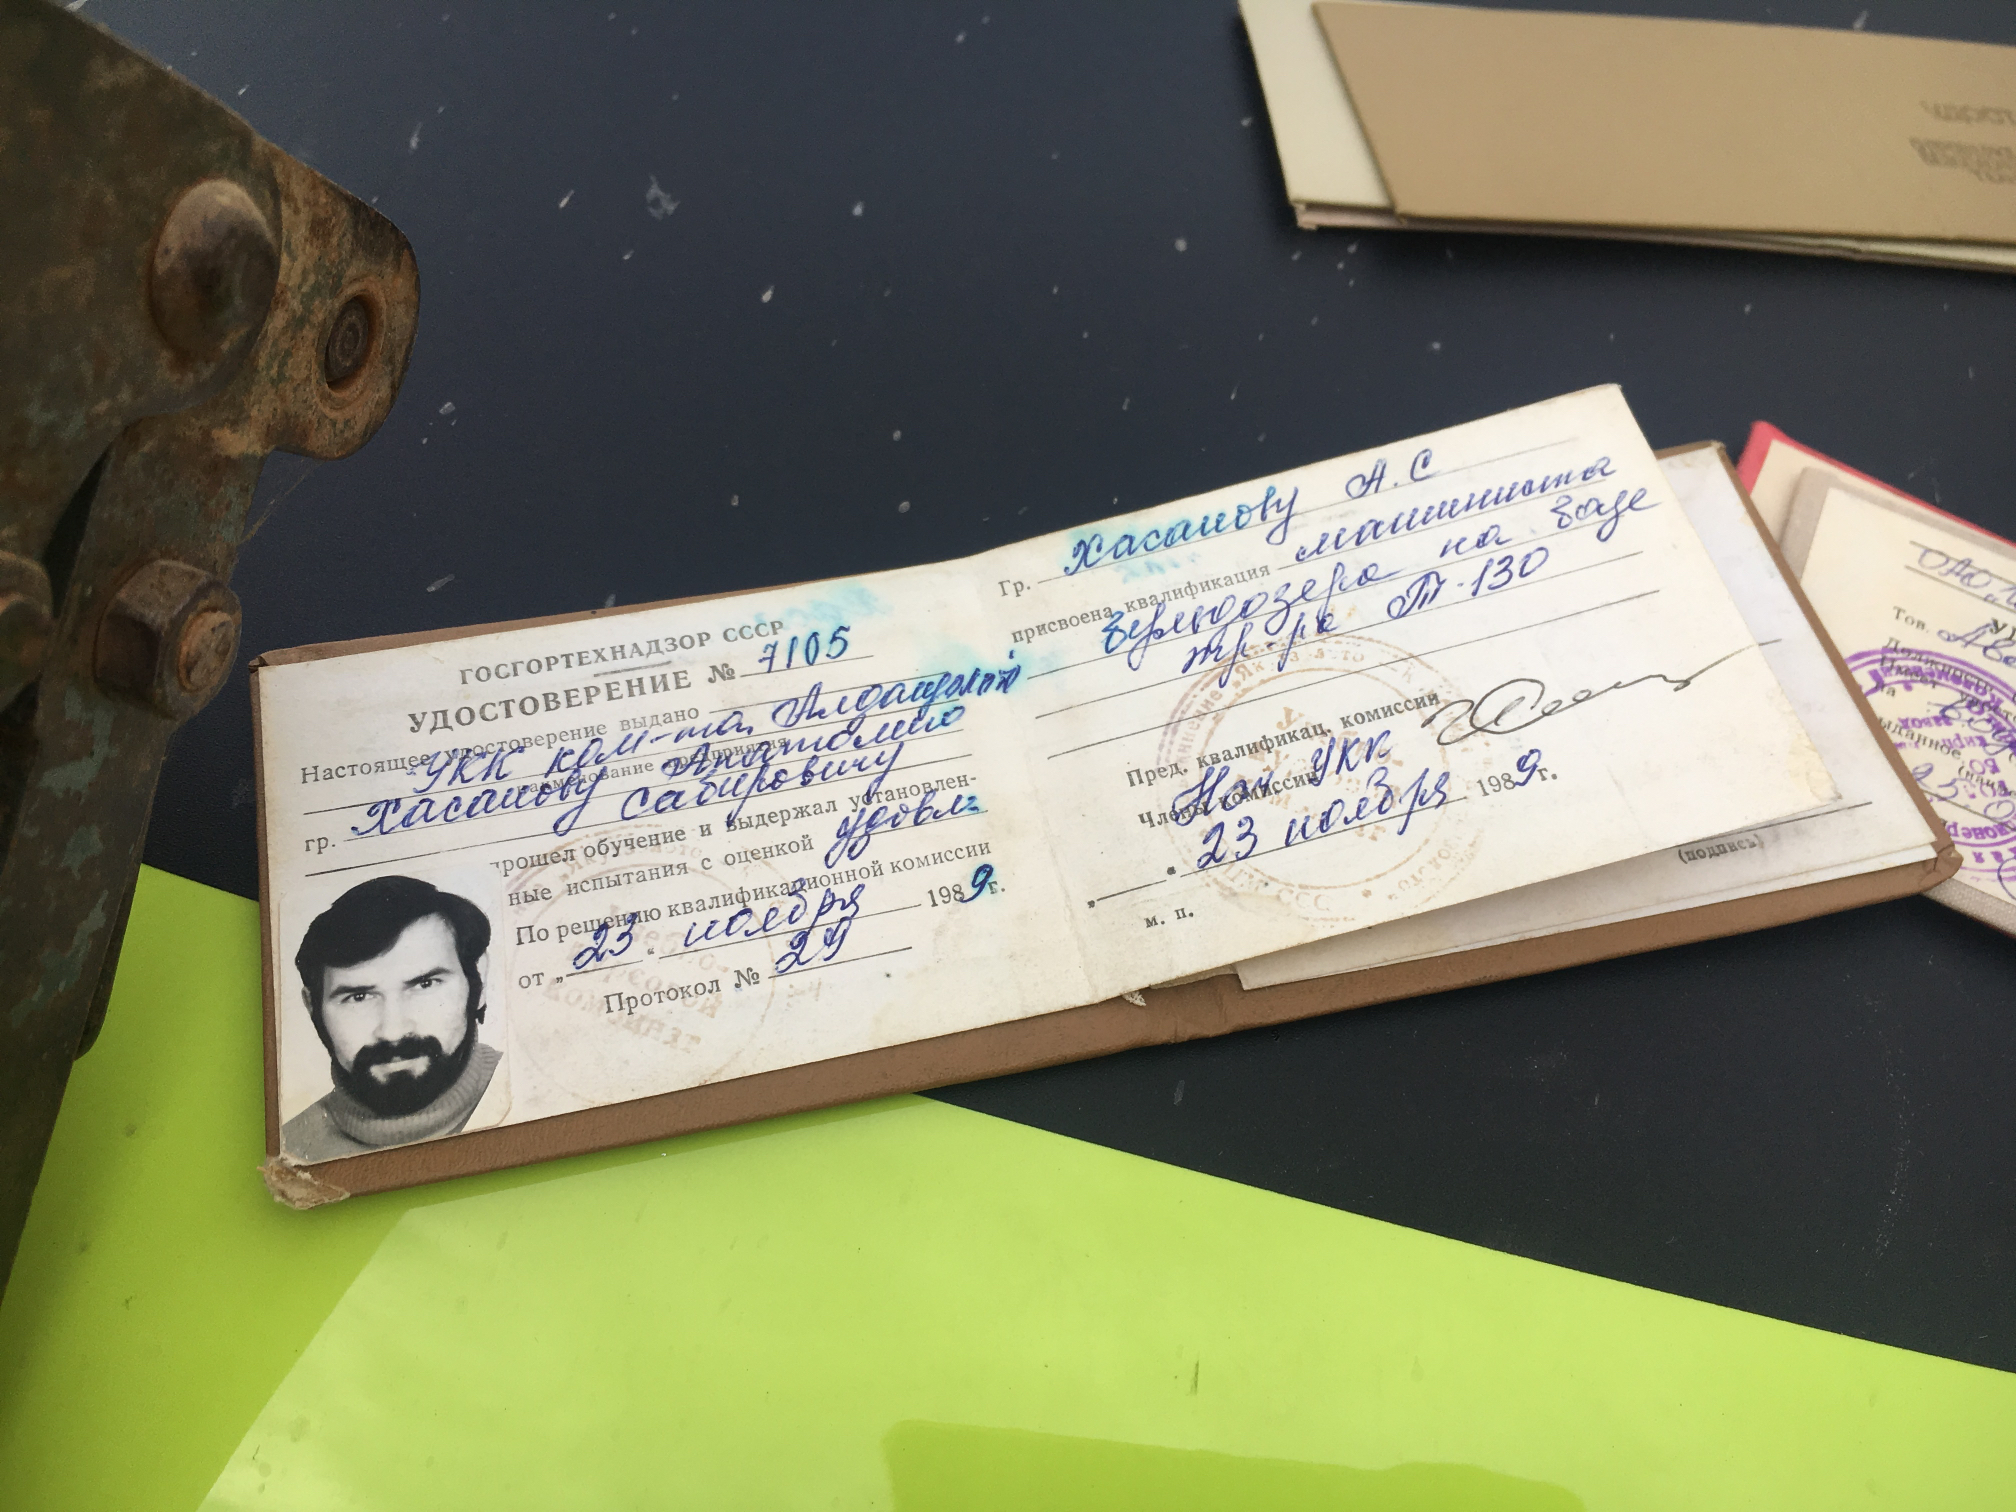 ГОСГОРТЕХНАДЗОР СССР
УДОСТОВЕРЕНИЕ № 7105
Настоящее удостоверение выдано
УКК ком-та Алданзолото
наименование предприятия
гр. Хасанову Анатолию
Сабировичу
прошел обучение и выдержал установлен-
ные испытания с оценкой удовл.
По решению квалификационной комиссии
от „23" ноября 1989 г.
Протокол № 29
Гр. Хасанову А.С
присвоена квалификация машиниста
бульдозера на базе
тр-ра Т-130
Пред. квалификац. комиссии
Нач УКК
Члены комиссии
„ " 23 ноября 1989 г.
м. п.
(подпись)
ОАО
Тов.